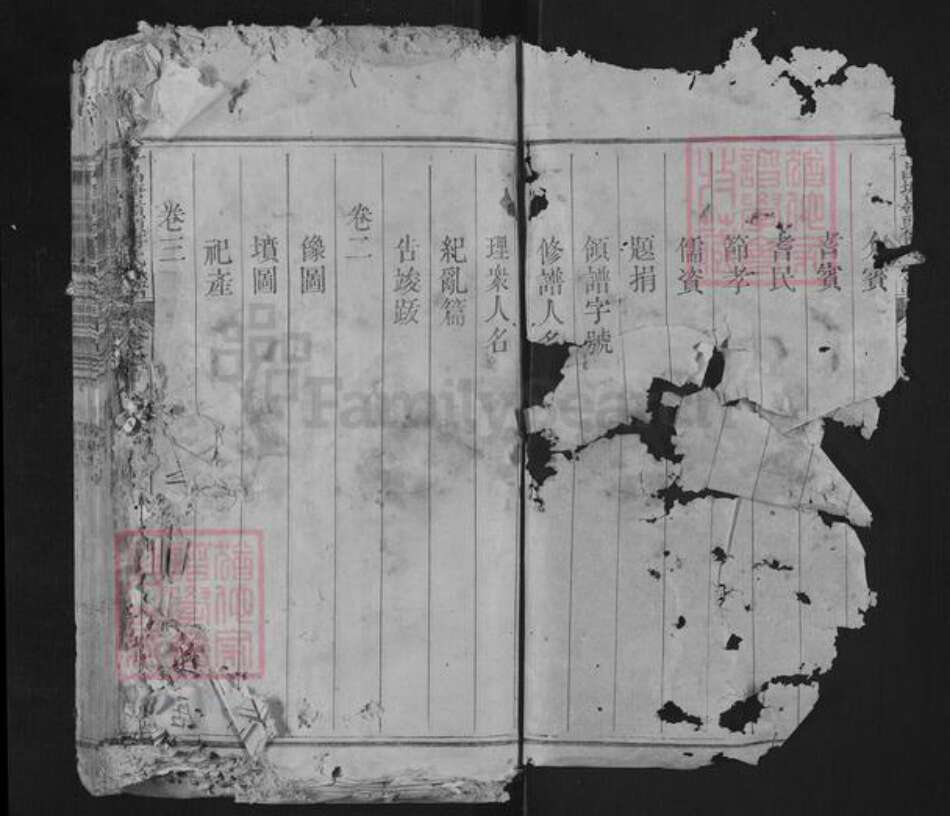 賓
耆賓
耆民
節孝
儒資
題捐
領譜字號
修譜人名
理衆人名
紀亂篇
告竣跋
卷二
像圖
墳圖
祀產
卷三
FamilySearch